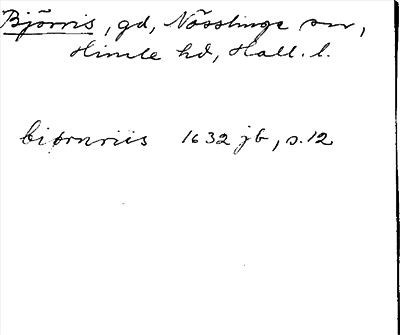 Björris, gd, Nösslinge sn,
Himle hd, Hall. l.
biörnriis 1632 jb, s. 12